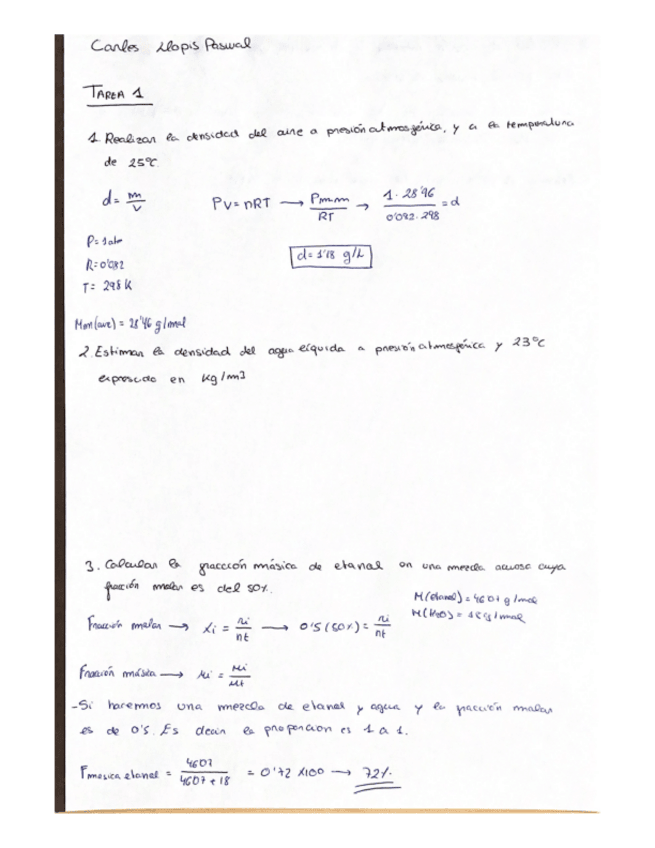 Carles Llopis Pascual
TAREA 1
1. Realizar la densidad del aire a presión atmosférica, y a la temperatura
de 25ºC.
d = m/V
PV = nRT → P.m.m/RT → 1 · 28'96/0'082 · 298 = d
P = 1 atm
R = 0'082
T = 298 K
d = 1'18 g/L
Mm (aire) = 28'96 g/mol
2. Estimar la densidad del agua líquida a presión atmosférica y 23ºC
expresado en kg/m3
3. Calcular la fracción másica de etanol en una mezcla acuosa cuya
fracción molar es del 50%.
M(etanol) = 46'07 g/mol
M(H2O) = 18 g/mol
Fracción molar → xi = ni/nt → 0'5 (50%) = ni/nt
Fracción másica → Mi = Mi/Mt
- Si haremos una mezcla de etanol y agua y la fracción molar
es de 0'5. Es decir la proporcion es 1 a 1.
Fmasica etanol = 46'07/46'07 + 18 = 0'72 x100 → 72%.